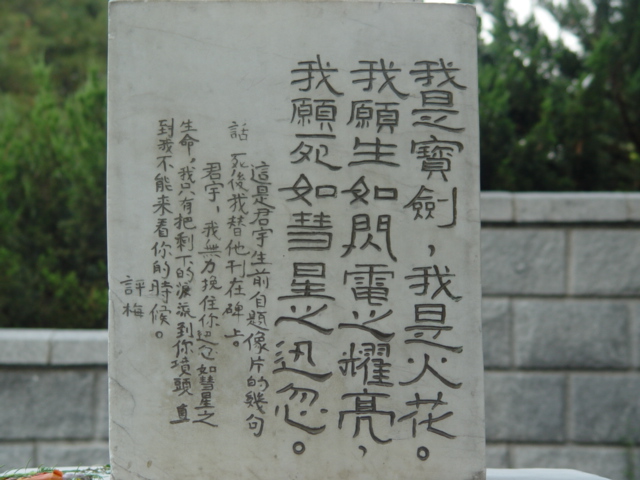 我是寶劍，我是火花。
我願生如閃電之耀亮，
我願死如彗星之迅忽。
這是君宇生前自題像片的幾句
話，死後我替他刊在碑上。
君宇，我無力挽住你迅忽如彗星之
生命，我只有把剩下的淚流到你墳頭，直
到我不能來看你的時候。
評梅